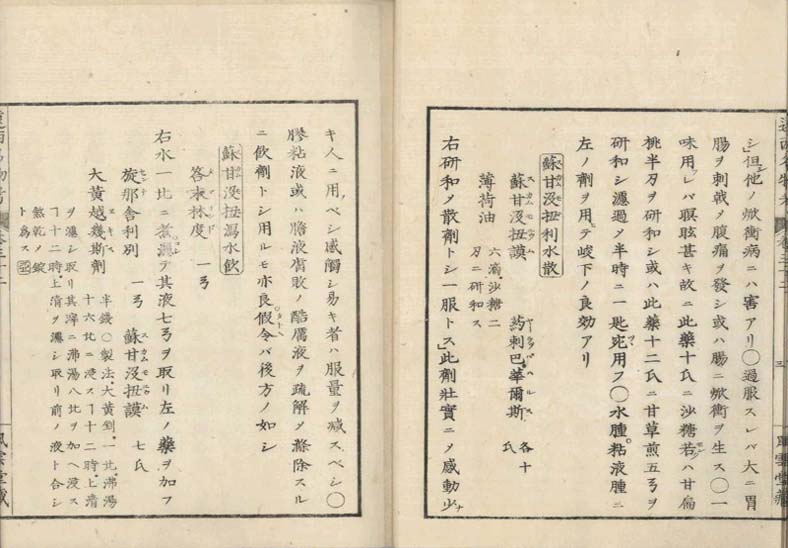 シ但他ノ焮衝病ニハ害アリ〇過服スレバ大ニ胃
腸ヲ刺戟メ腹痛ヲ發シ或ハ腸ニ焮衝ヲ生ス〇一
味用レバ瞑眩甚キ故ニ此藥十氏ニ沙糖若ハ甘扁
桃半刃ヲ研和シ或ハ此藥十二氏ニ甘草煎五弓ヲ
研和シ濾過メ半時ニ一匙宛用フ〇水腫粘液腫ニ
左ノ劑ヲ用テ峻下ノ良効アリ
蘇甘没扭利水散
蘇甘没扭謨 葯刺巴華爾斯 各十氏
薄荷油 六滴沙糖二刃ニ研和ス
右研和メ散劑トシ一服トス」此劑壯實ニメ感動少ナ
キ人ニ用ベシ感觸シ易キ者ハ服量ヲ減スベシ〇
膠粘液或ハ膽液腐敗ノ酷厲液ヲ疏解メ滌除スル
ニ飲劑トシ用ルモ亦良假令バ後方ノ如シ
蘇甘没扭瀉水飲
荅末林度 一弓
右水一比ニ煮濾テ其液七弓ヲ取リ左ノ藥ヲ加フ
旋那舎利別 一弓 蘇甘没扭謨 七氏
大黄越幾斯劑 半錢〇製法大黄剉一比沸湯
十六比ニ浸スヿ十二時上清
ヲ濾シ取リ其滓ニ沸湯八比ヲ加ヘ浸ス
ヿ十二時上清ヲ濾シ取リ前ノ液ト合シ
煎乾メ錠
ト為ス
風雲堂藏